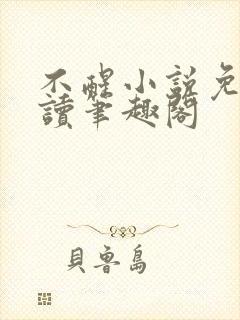 不醒小說免
讀筆趣閣
貝魯島